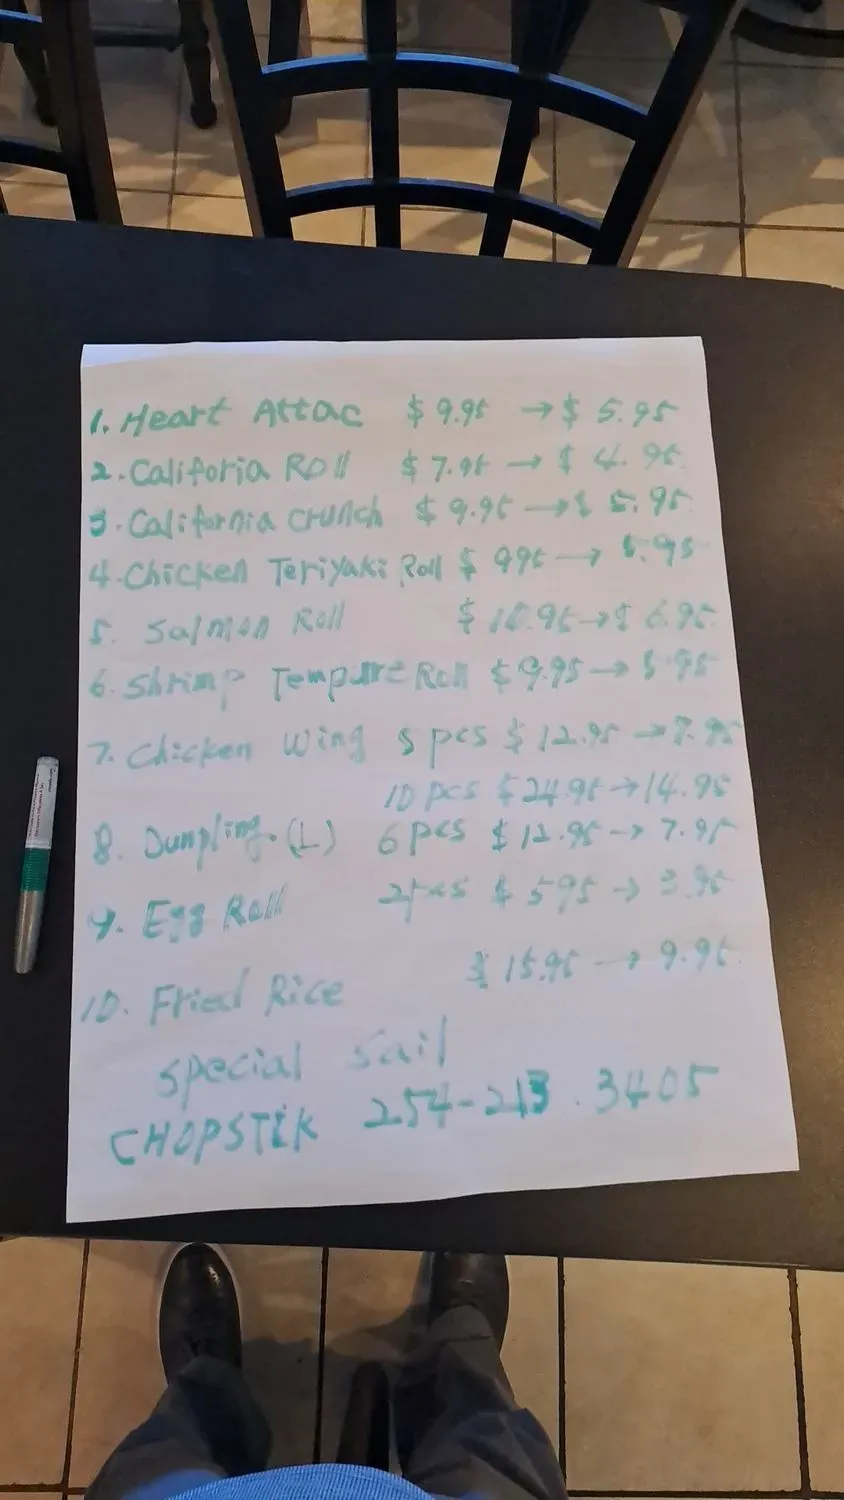 1. Heart Attac $9.95 → $5.95
2. Califoria Roll $7.95 → $4.95
3. California crunch $9.95 → $5.95
4. Chicken Teriyaki Roll $995 → 5.95
5. Salmon Roll $10.95 → $6.95
6. Shrimp Tempura Roll $9.95 → 5.95
7. Chicken Wing 5 pcs $12.95 → 7.95
10 pcs $24.95 → 14.95
8. Dumpling. (L) 6 pcs $12.95 → 7.95
9. Egg Roll 2pcs $595 → 3.95
10. Fried Rice $15.95 → 9.95
Special Sail
CHOPSTIK 254-213.3405